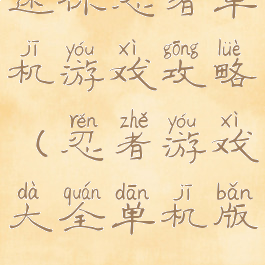 迷你忍者单
jī yóu xì gōng lüè
机游戏攻略
rěn zhě yóu xì
（忍者游戏
dà quán dān jī bǎn
大全单机版